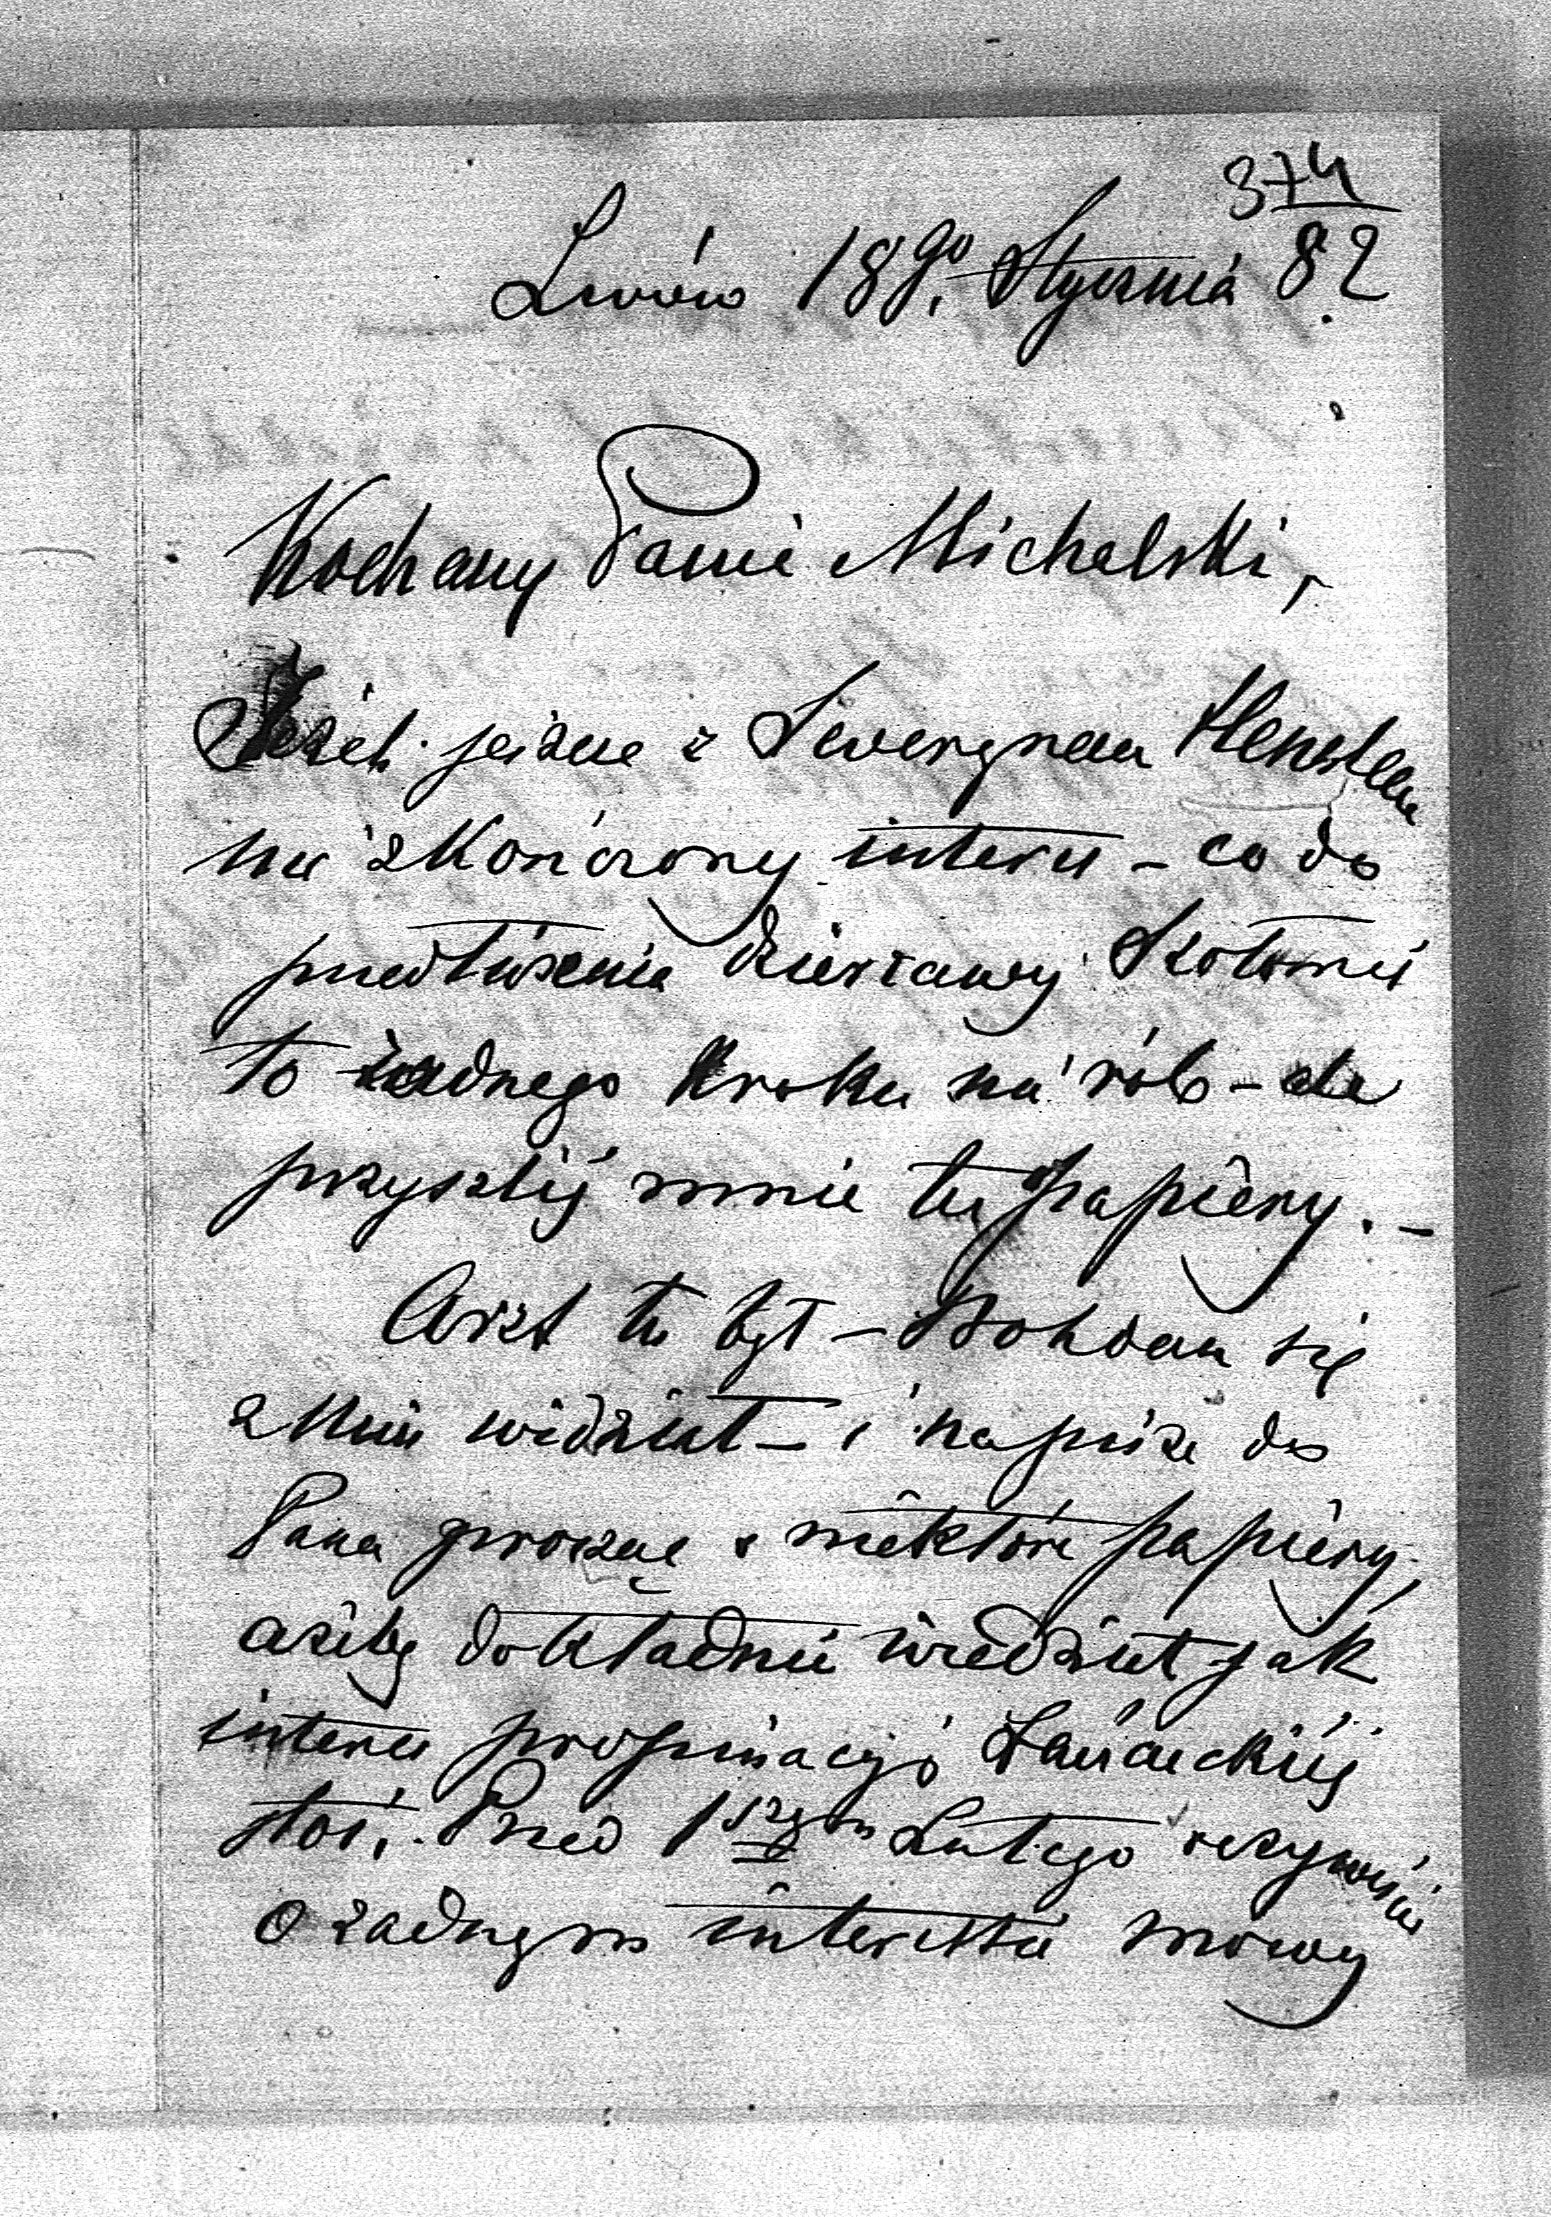 374
Lwów 18go. Stycznia 82.
Kochany Panie Michalski,
Jeżeli jeszcze z Severynem
nie skończony interes – co do
przedłużenia dzierżawy
to żadnego kroku nie rób – ale
przyszlij mnie tu papiéry. –
Arzt tu był – Bohdan się
z nim widział – i napisze do
Pana prosząc o niektóre papiéry,
ażeby dokładnie wiedział jak
interes propinacyi Łańcuckiéj
stoi. Przed 1szym Lutego oczywiście
o żadnym interesie mowy